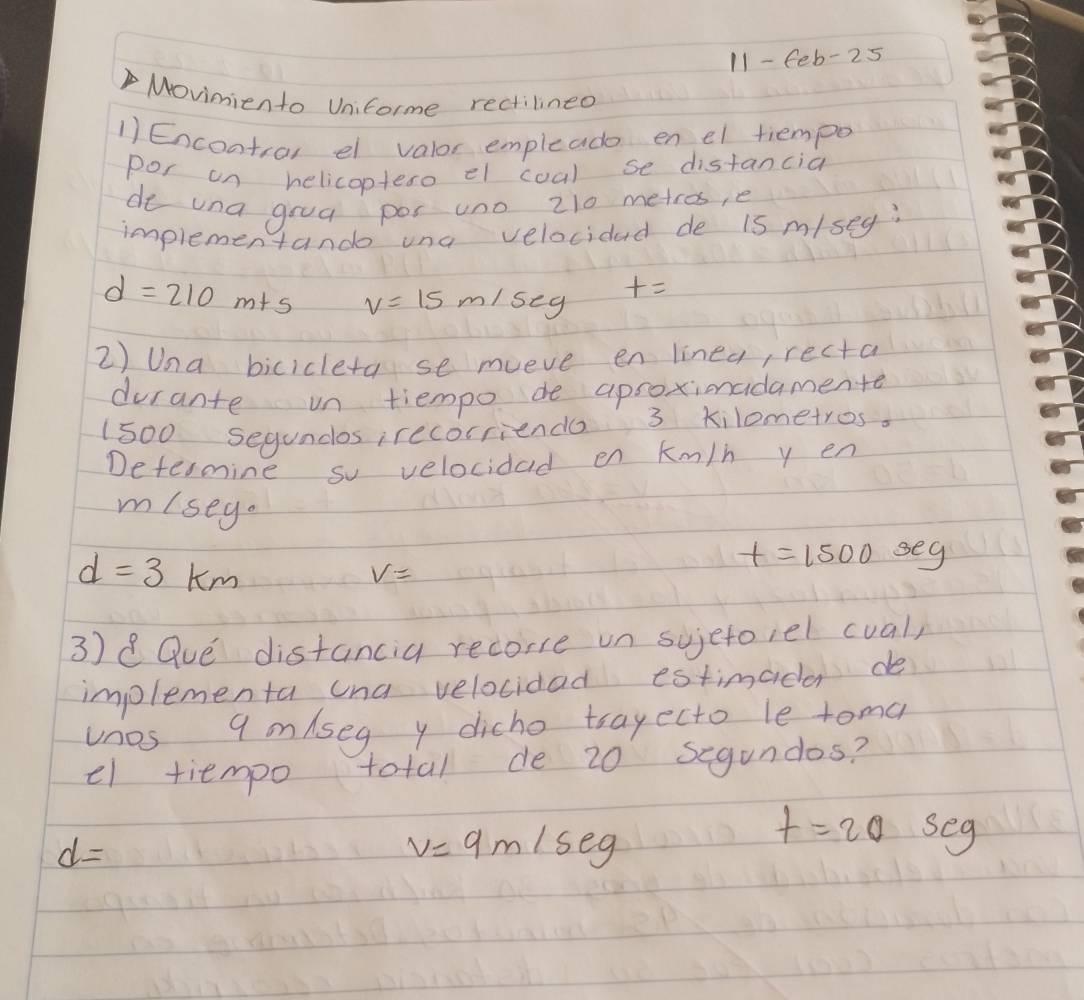 11-feb-25
Movimiento Uniforme rectilineo
1) Encontrar el valor empleado en el tiempo
por un helicoptero el cual se distancia
de una grua por uno 210 metros, e
implementando una velocidad de 15 m/seg:
d = 210 mts v = 15 m/seg t =
2) Una bicicleta se mueve en linea, recta
durante un tiempo de aproximadamente
1500 segundos, recorriendo 3 Kilometros.
Determine su velocidad en Km/h y en
m/seg.
d = 3 Km v = t = 1500 seg
3) ¿Qué distancia recorre un sujeto, el cual,
implementa una velocidad estimada de
unos 9 m/seg y dicho trayecto le toma
el tiempo total de 20 segundos?
d = v = 9 m/seg t = 20 seg